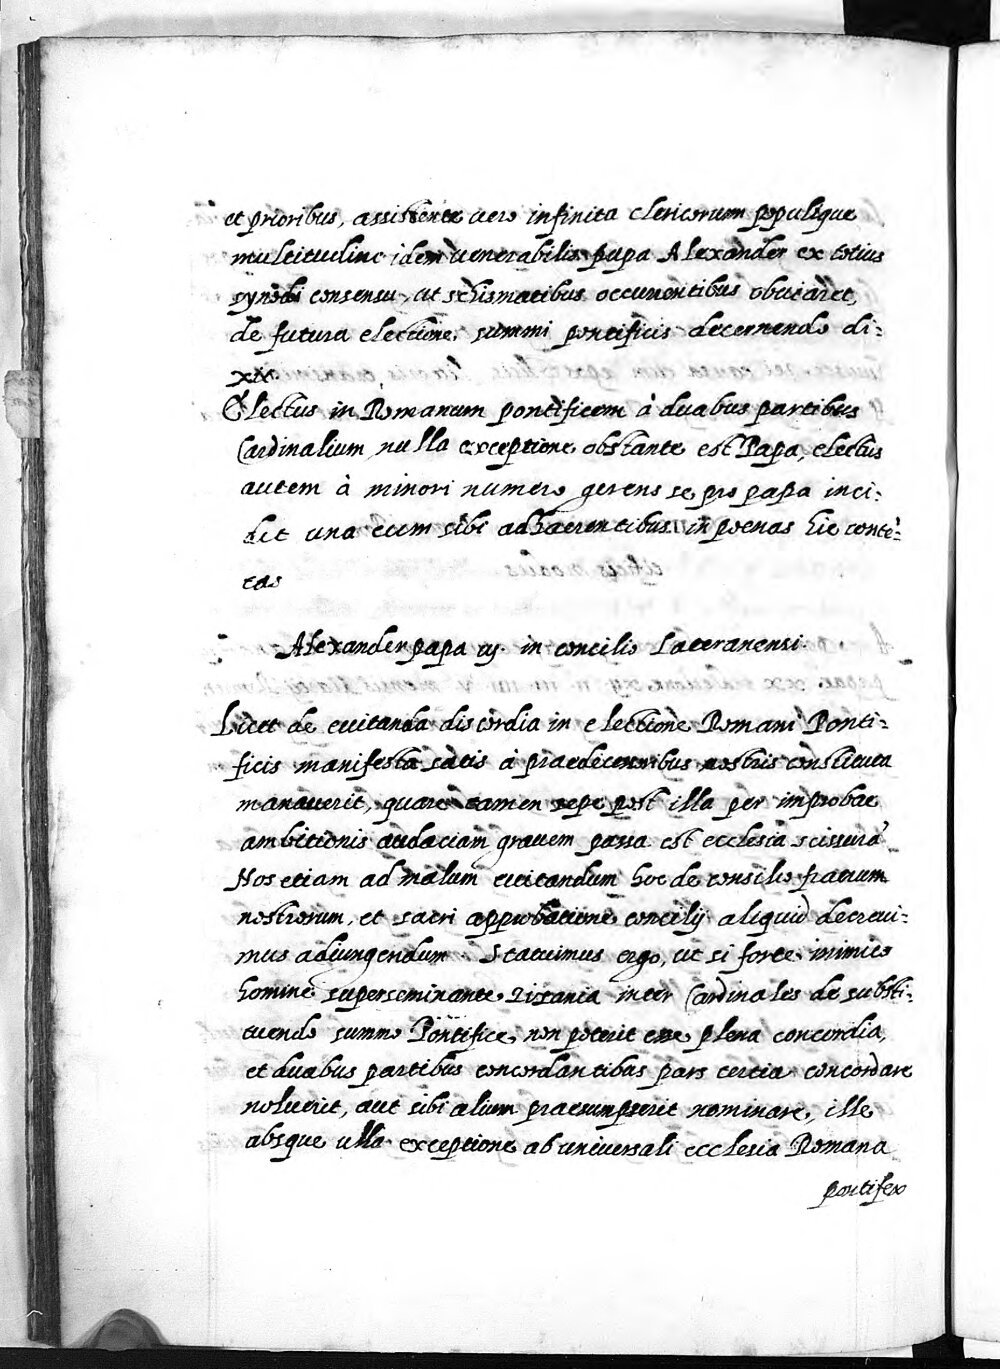 et prioribus, assistente vero infinita clericorum populique
multitudine idem venerabilis papa Alexander ex totius
synodi consensu, ut schismatibus occurrentibus obviaret,
de futura electione summi pontificis decernendo di=
xit.
Electus in Romanum pontificem à duabus partibus
Cardinalium nulla exceptione obstante est Papa, electus
autem à minori numero gerens se pro papa inci=
dit una cum sibi adhaerentibus in poenas hic conte=
tas
Alexander papa iij. in concilio Lateranensi.
Licet de evitanda discordia in electione Romani Ponti=
ficis manifesta satis à praedecessoribus nostris constituta
manaverit, quare tamen sepe post illa per improbae
ambitionis audaciam gravem passa est ecclesia scissurā
Nos etiam ad malum evitandum hoc de consilio fratrum
nostrorum, et sacri approbatione concilij aliquid decrevi=
mus adjungendum. Statuimus ergo, ut si forte inimico
homine superseminante zizania inter Cardinales de substi=
tuendo summo Pontifice, non poterit esse plena concordia,
et duabus partibus concordantibus pars tertia concordare
noluerit, aut sibi alium praesumpserit nominare, ille
absque ulla exceptione ab universali ecclesia Romana
pontifex